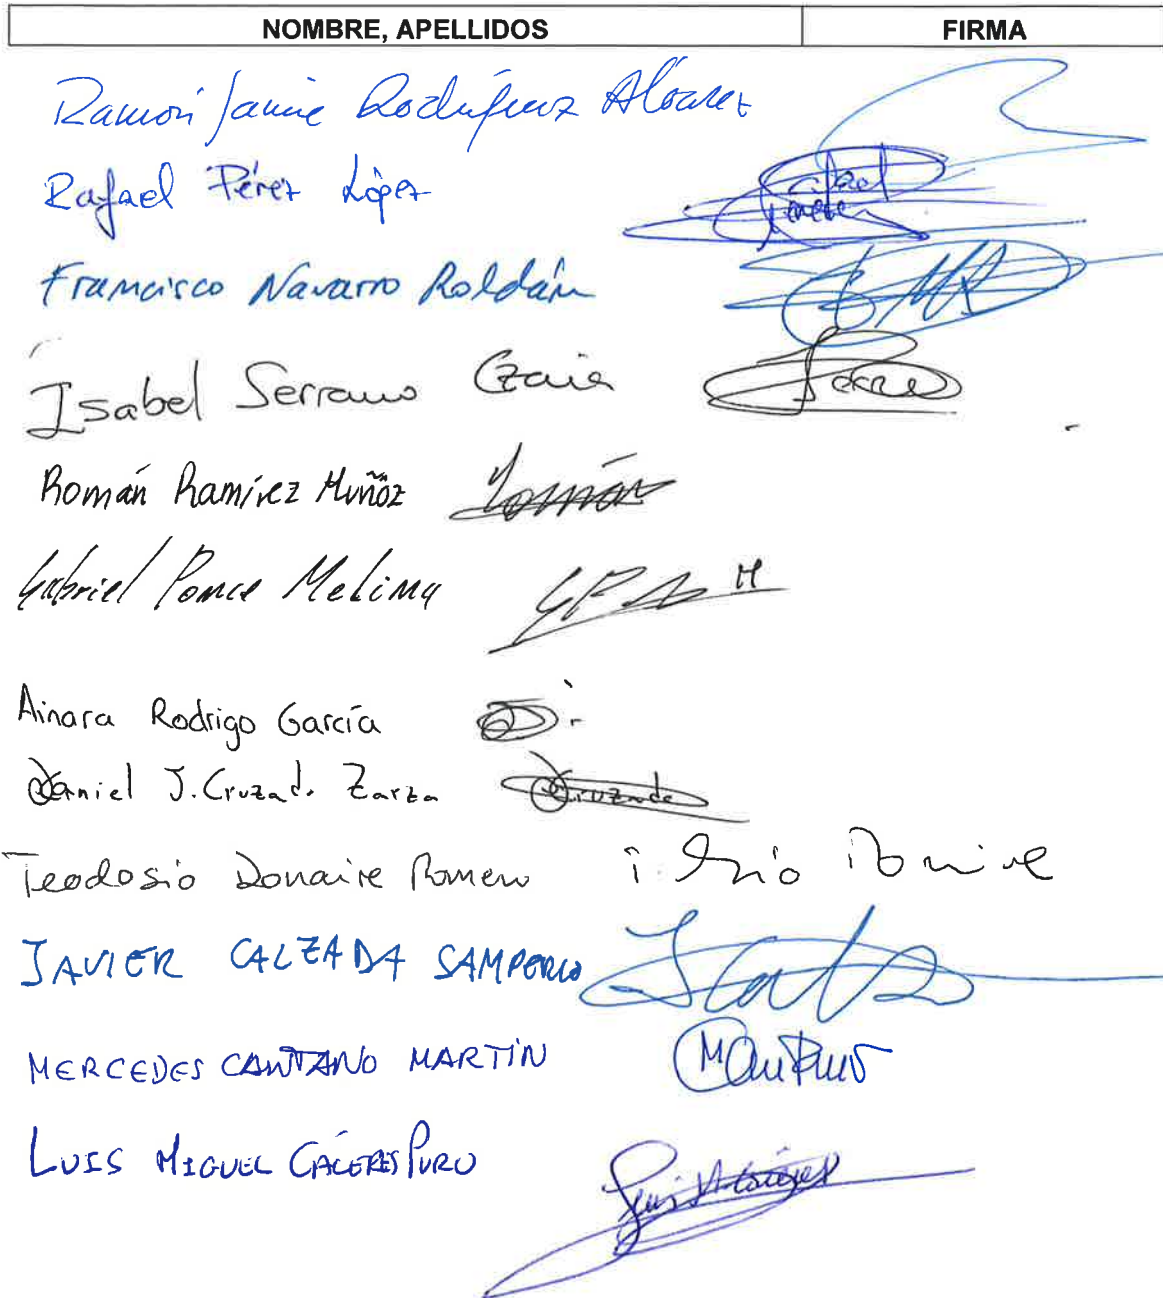 NOMBRE, APELLIDOS FIRMA
Ramón Jaime Rodríguez Álvarez
Rafael Pérez López
Francisco Navarro Roldán
Isabel Serrano
Román Ramírez Muñoz Román
Gabriel Ponce GP M
Ainara Rodrigo García
Daniel J. Cruzado Zarza DCruzado
Teodosio Donaire Romero
JAVIER CALZADA SAMPERIO
MERCEDES CANTANO MARTÍN
LUIS MIGUEL CÁCERES PURO